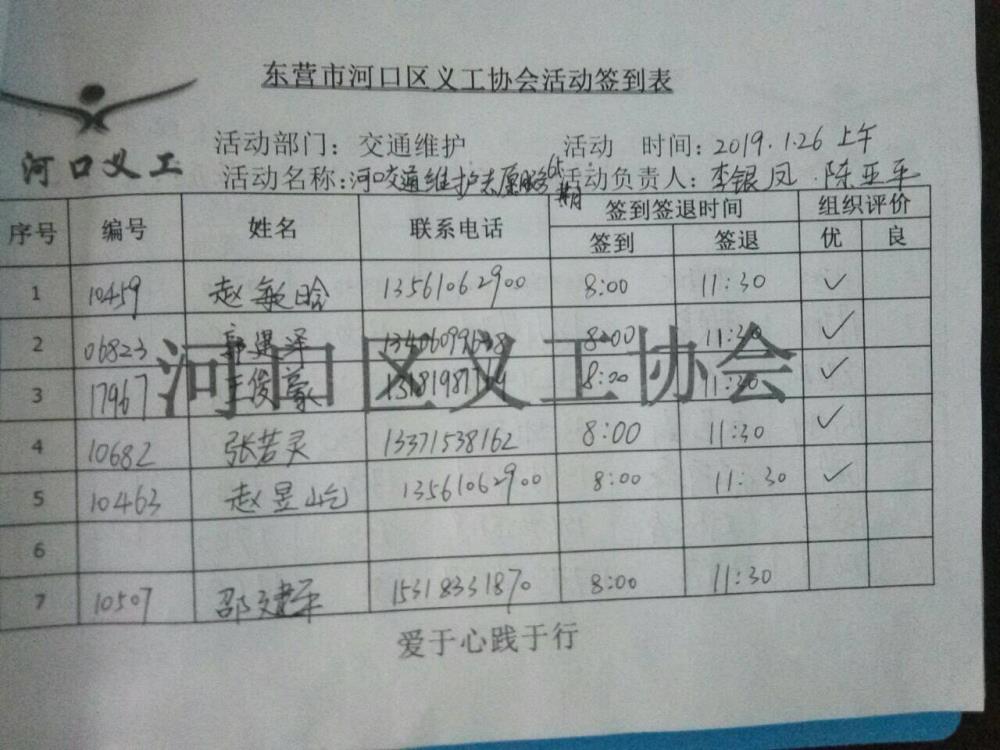 东营市河口区义工协会活动签到表
河口义工
活动部门：交通维护 活动 时间：2019.1.26 上午
活动名称：河口交通维护志愿服务 期 活动负责人：李银凤 陈亚平
序号 编号 姓名 联系电话 签到签退时间 组织评价
签到 签退 优 良
1 10459 赵敏晗 13561062900 8:00 11:30 ✓
2 06823 郭建泽 8:00 11:30 ✓
3 17967 王俊豪 8:00 11:30 ✓
4 10682 张若灵 13371538162 8:00 11:30 ✓
5 10463 赵昱屹 13561062900 8:00 11:30 ✓
6
7 10507 邵建平 15318331870 8:00 11:30
河口区义工协会
爱于心践于行